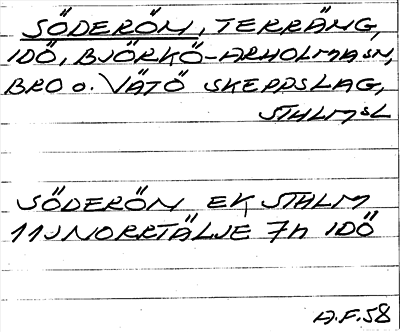 SÖDERÖN, TERRÄNG,
IDÖ, BJÖRKÖ-ARHOLMA SN,
BRO o. VÄTÖ SKEPPSLAG,
STHLMSL
SÖDERÖN EK STHLM
11J NORRTÄLJE 7h IDÖ
A.F.58